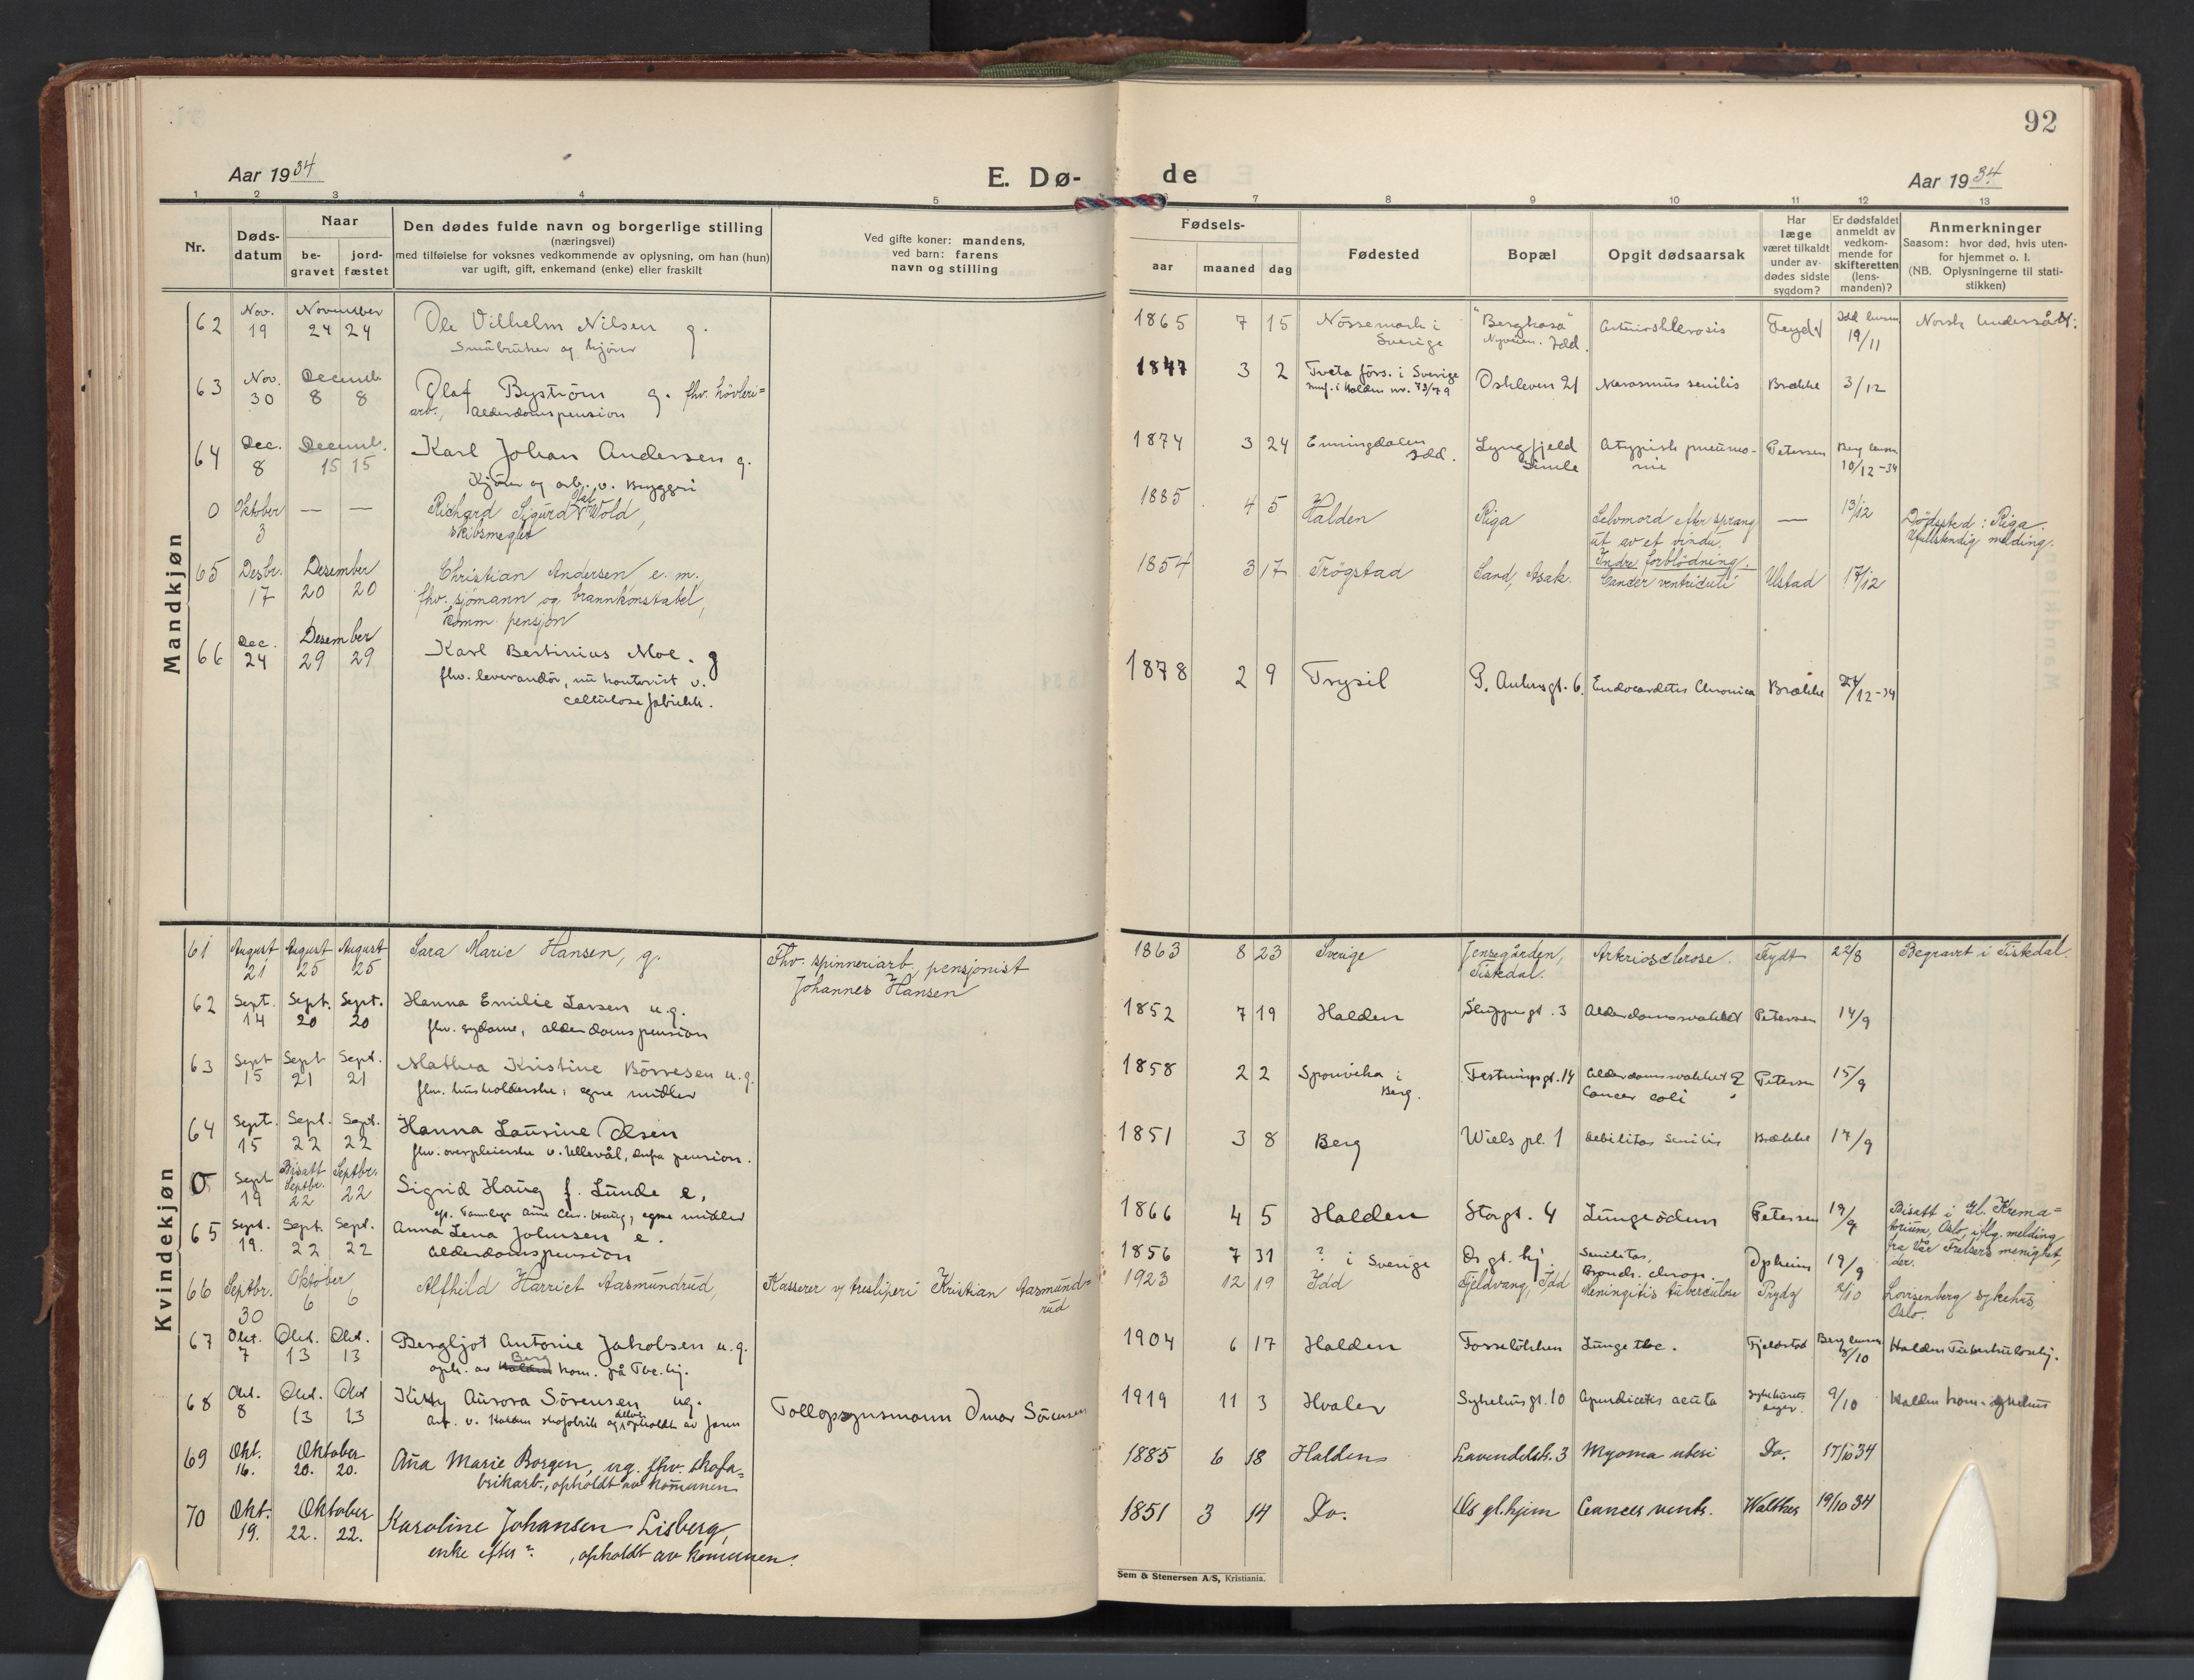 92
Aar 1934
E. Dø-
de
Aar 1934
1 2 3 4 5 7 8 9 10 11 12 13
Nr.
Døds-
datum
Naar
be-
gravet
jord-
fæstet
Den dødes fulde navn og borgerlige stilling
(næringsvei)
med tilføielse for voksnes vedkommende av oplysning, om han (hun)
var ugift, gift, enkemand (enke) eller fraskilt
Ved gifte koner: mandens,
ved barn: farens
navn og stilling
Fødsels-
aar maaned dag
Fødested
Bopæl
Opgit dødsaarsak
Har
læge
været tilkaldt
under av-
dødes sidste
sygdom?
Er dødsfaldet
anmeldt av
vedkom-
mende for
skifteretten
(lens-
manden)?
Anmerkninger
Saasom: hvor død, hvis uten-
for hjemmet o. l.
(NB. Oplysningerne til stati-
stikken)
Mandkjøn
62 Nov. 19 November 24 24 Ole Vilhelm Nilsen g.
Småbruker og kjører
1865 7 15 Nössemark i Sverige "Bergkasa" Nyveien. Idd. Arteriosklerosis Feydt Idd lensm 19/11 Norsk Undersått.
63 Nov. 30 Decemb. 8 8 Olaf Byström g. fhv. hövleri=
arb., Alderdomspension
1847 3 2 Tveta förs. i Sverige Oskleven 21 Marasmus senilis Brække 3/12
64 Dec. 8 Decemb. 15 15 Karl Johan Andersen g.
Kjörer og arb. v. Bryggeri
1874 3 24 Enningdalen Idd. Lyngfjeld Simle Atypisk pneumo-
nie Petersen Berg lensm 10/12-34
0 Oktober 3 — — Richard Sigurd Olaf Wold,
skibsmegler
1885 4 5 Halden Riga Selvmord efter sprang
ut av et vindu.
Indre forblödning. — 13/12 Dödssted: Riga.
Ufullstendig melding.
65 Desbr. 17 Desember 20 20 Christian Andersen e. m.
fhv. sjömann og brannkonstabel,
komm. pensjon
1854 3 17 Trögstad Sand, Asak. Cancer ventriculi Ulstad 17/12
66 Dec. 24 Desember 29 29 Karl Bertinius Moe. g
fhv. leverandör, nu kontorist v.
cellulosefabrikk.
1878 2 9 Trysil P. Ankersgt. 6. Endocarditis Chronica Brække 27/12-34
Kvindekjøn
61 August 21 August 25 August 25 Sara Marie Hansen, g.
Fhv. spinneriarb, pensjonist
Johannes Hansen
1863 8 23 Sverige Jensegården, Tistedal. Arteriosclerose. Feydt 22/8 Begravet i Tistedal.
62 Sept. 14 Sept. 20 Sept. 20 Hanna Emilie Larsen u.g.
fhv. sydame, alderdomspension
1852 7 19 Halden Skippergt. 3 Alderdomssvakhet Petersen 14/9
63 Sept 15 Sept 21 Sept. 21 Mathea Kristine Börresen u.g.
fhv. husholderske, egne midler
1858 2 2 Sponvika i Berg. Festningsgt. 14 Alderdomssvakhet
Cancer coli Petersen 15/9
64 Sept. 15 Sept. 22 Sept. 22 Hanna Laurine Olsen
fhv. overpleierske v. Ullevål, pension.
1851 3 8 Berg Wiels pl. 1 Debilitas senilis Brække 17/9
0 Sept 19 Bisatt Septbr. 22 Septbr. 22 Sigrid Haug f. Lunde e,
1866 4 5 Halden Storgt. 4 Lungeödem Petersen 19/9 Bisatt i Gl. Krema=
torium, Oslo, iflg. melding
fra Vår Frelsers menighet,
65 Sept. 19. Sept. 22 Sept. 22 Anna Lena Johnsen e.
Alderdomspension
1856 7 31 ? i Sverige Os gl. hj. Senilitas, Opheim 19/9
66 Septbr. 30 Oktober 6 6 Alfhild Harriet Aasmundrud,
Kasserer v/ tresliperi Kristian Aasmund=
rud
1923 12 19 Idd Fjeldvang, Idd Meningitis tuberculose Prydz 2/10 Lovisenberg sykehus,
Oslo.
67 Okt. 7 Okt. 13 Okt. 13 Bergljot Antonie Jakobsen u.g.
oph. av Berg kom. på Tbc. hj.
1904 6 17 Halden Fosselökken Lunge tbc. Fjeldstad Berg lensm 8/10 Halden Tuberkulosehj.
68 Okt. 8 Okt. 13 Okt 13 Kitty Aurora Sörensen ug.
Arb. v. Halden skofabrik og opholdt av faren
Tollopsynsmann Omar Sörensen
1919 11 3 Hvaler Sykehusgt. 10 Apendicitis acuta Sykehusets 9/10 Halden kom. sykehus
69 Okt. 16. Oktober 20. 20. Anna Marie Borgen, ug. fhv. skofa=
brikarb., opholdt av kommunen
1885 6 18 Halden Lavendelstr. 3 Myoma uteri Do. 17/10 34
70 Okt. 19. Oktober 22. 22. Karoline Johansen Lisberg,
enke efter ? , opholdt av kommunen.
1851 3 14 Do. Os gl. hjem Cancer ventr. Walther 19/10 34
Sem & Stenersen A/S, Kristiania.